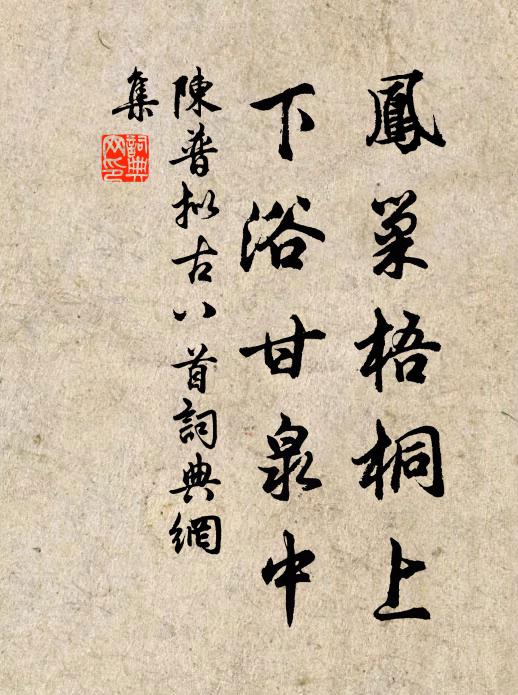 鳳巢梧桐上
下浴甘泉中
陳普拟古八首詞典網
集
詞典
网印